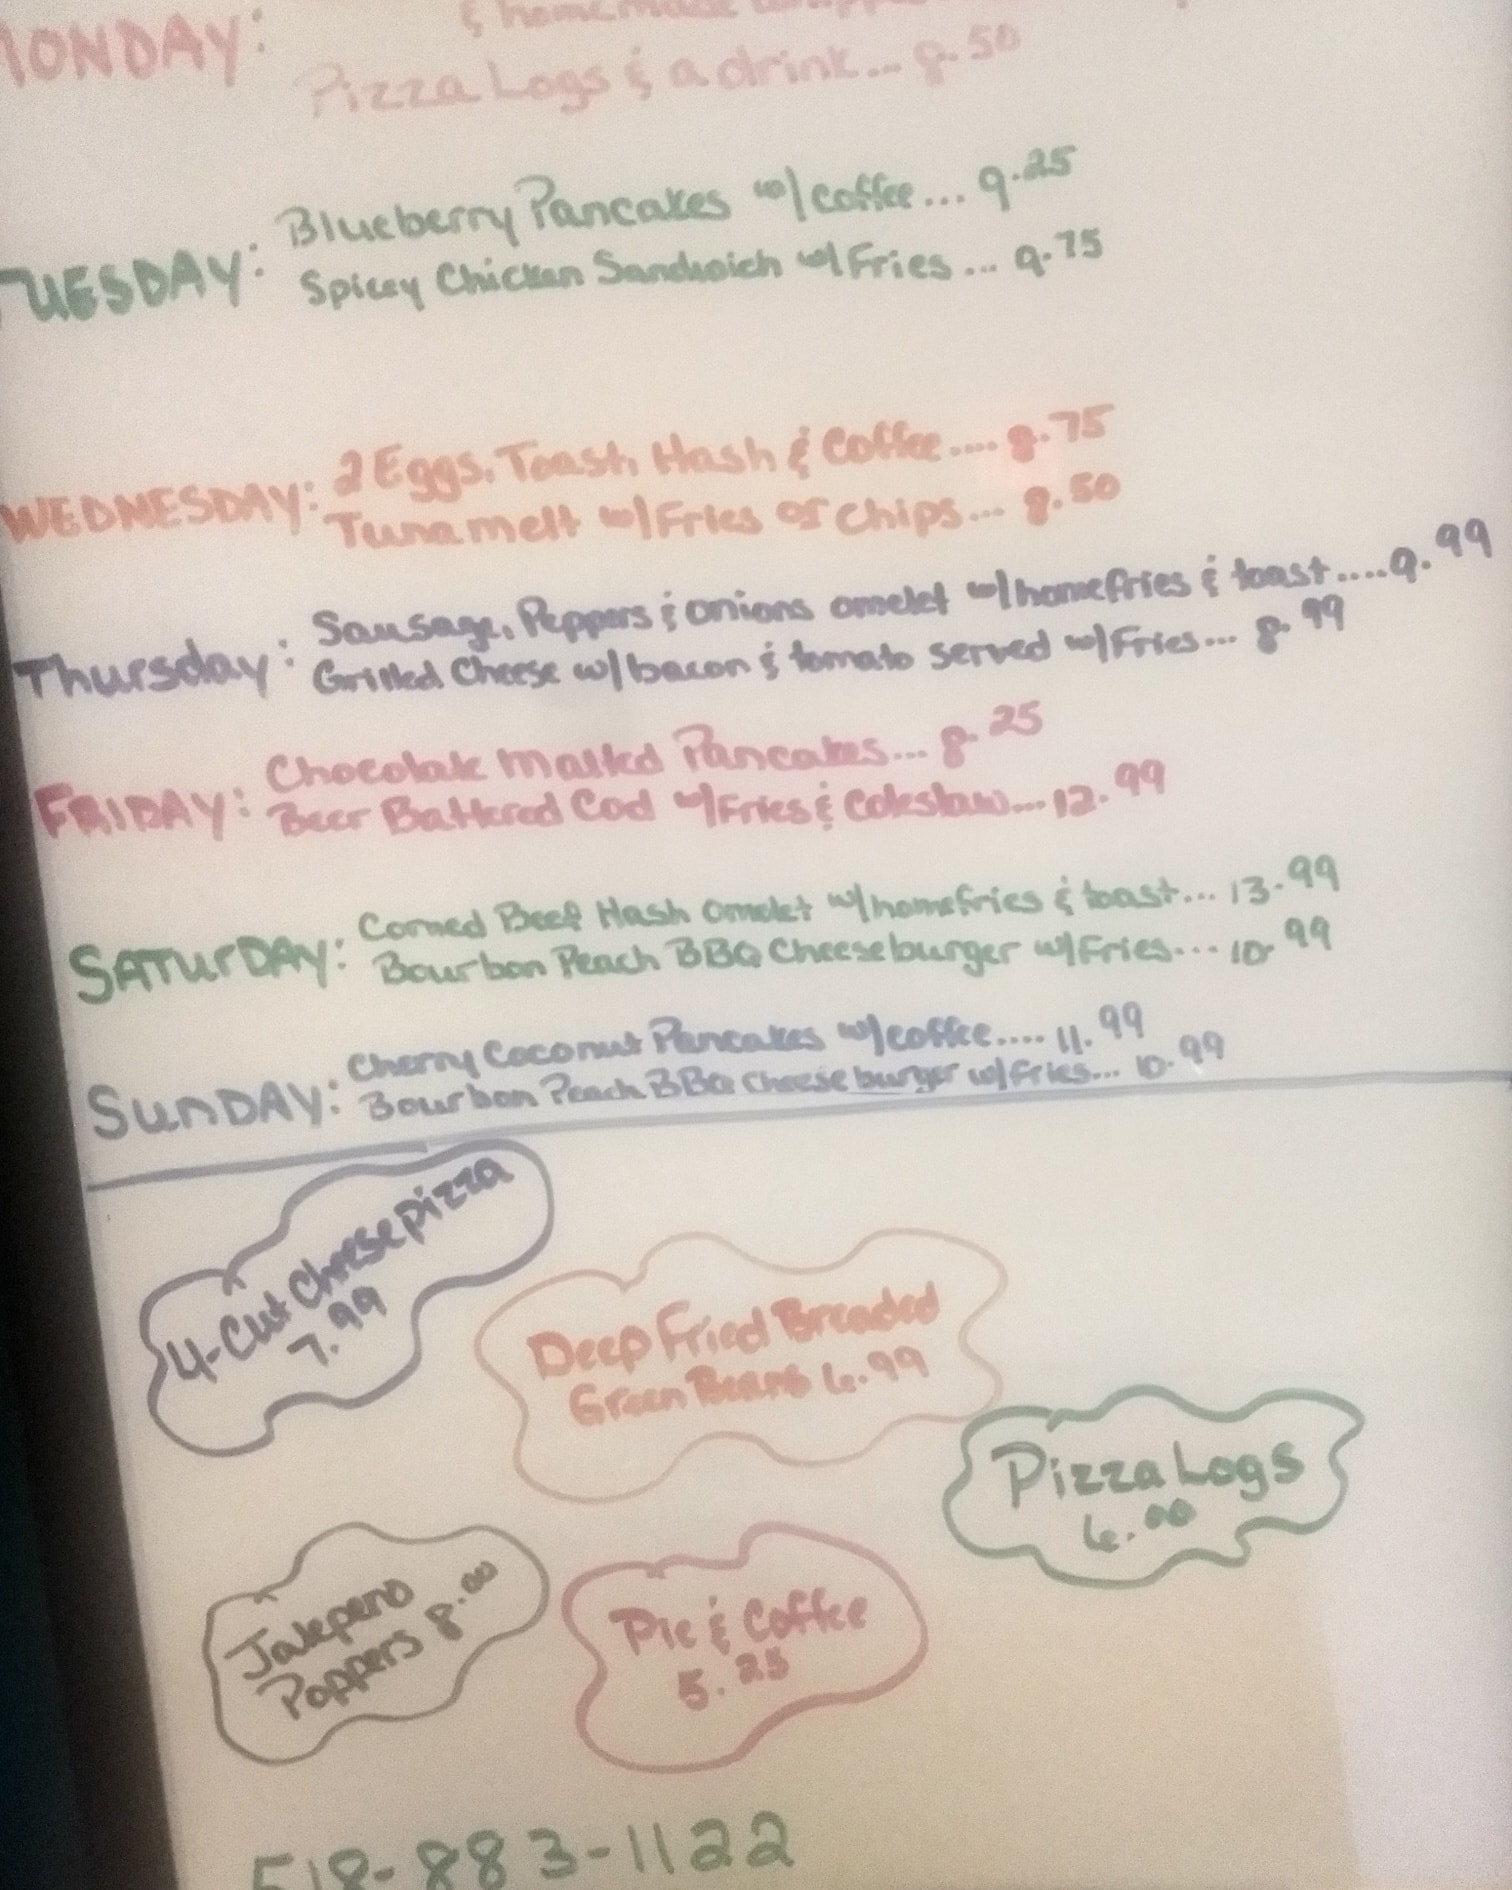 MONDAY: & homemade
Pizza Logs & a drink... 8.50
TUESDAY: Blueberry Pancakes w/coffee... 9.25
Spicey Chicken Sandwich w/Fries... 9.75
WEDNESDAY: 2 Eggs, Toast, Hash & Coffee.... 8.75
Tuna melt w/Fries or chips... 8.50
Thursday: Sausage, Peppers & onions omelet w/homefries & toast....9.99
Grilled Cheese w/bacon & tomato served w/Fries... 8.99
FRIDAY: Chocolate Malted Pancakes... 8.25
Beer Battered Cod w/Fries & Coleslaw... 12.99
SATURDAY: Corned Beef Hash omelet w/homefries & toast... 13.99
Bourbon Peach BBQ Cheeseburger w/Fries... 10.99
SUNDAY: Cherry Coconut Pancakes w/coffee.... 11.99
Bourbon Peach BBQ Cheeseburger w/Fries... 10.99
4-Cut Cheese pizza
7.99
Deep Fried Breaded
Green Beans 6.99
Pizza Logs
6.00
Jalepeno
Poppers 8.00
Pie & Coffee
5.25
518-883-1122